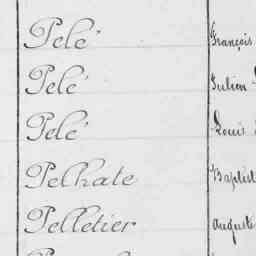 Pelé François
Pelé Julien
Pelé Louis
Pelhate Baptist
Pelletier Auguste